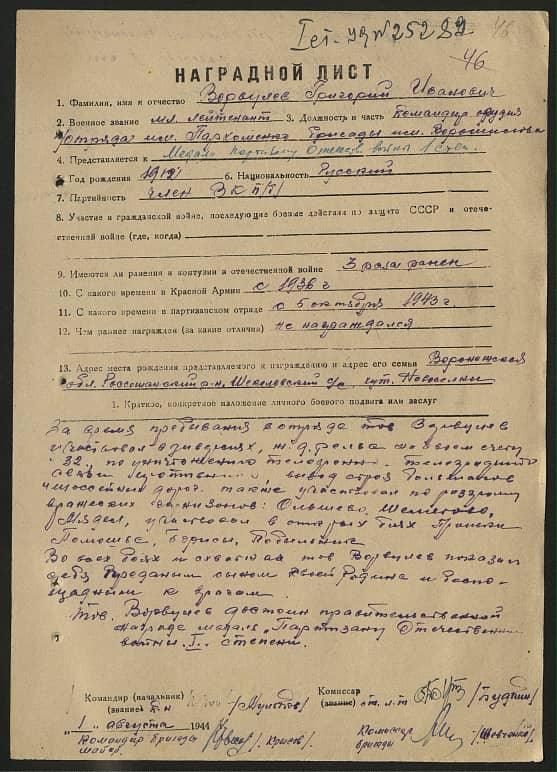 Iст. УД № 25282 46
46
НАГРАДНОЙ ЛИСТ
1. Фамилия, имя и отчество Ворвулев Григорий Иванович
2. Военное звание мл. лейтенант 3. Должность и часть Командир орудия
отряда им. Пархоменко бригады им. Ворошилова
4. Представляется к Медали партизану Отечеств. войны 1 степ.
5. Год рождения 1912 6. Национальность Русский
7. Партийность член ВКП/б/
8. Участие в гражданской войне, последующие боевые действия по защите СССР и отече-
ственной войне (где, когда)
9. Имеются ли ранения и контузии в отечественной войне 3 раза ранен
10. С какого времени в Красной Армии с 1936 г
11. С какого времени в партизанском отряде с 5 октября 1943 г.
12. Чем раннее награжден (за какие отличия) не награждался
13. Адрес места рождения представляемого к награждению и адрес его семьи Воронежская
обл. Россошанский р-н, с/с, хут. Новоселки
1. Краткое, конкретное изложение личного боевого подвига или заслуг
За время пребывания в отряде тов Ворвулев
участвовал в диверсиях, ж.д. рельс на своем счету
32, по уничтожению
связи противника, вывод строя
шоссейных дорог. также участвовал по разгрому
вражеских гарнизонов: Ольшево,
Мядел, участвовал в открытых боях
Во всех боях и схватках тов Ворвулев показал
себя преданным сыном своей Родине и беспо-
щадным к врагам.
Тов. Ворвулев достоин правительственной
награде медаль „Партизану Отечественн
войны" I. степени.
Командир (начальник) Комиссар
(звание) (звание) ст. л-т
„1„ августа 1944
Командир бригады Комиссар
майор бригады /Шевченко/